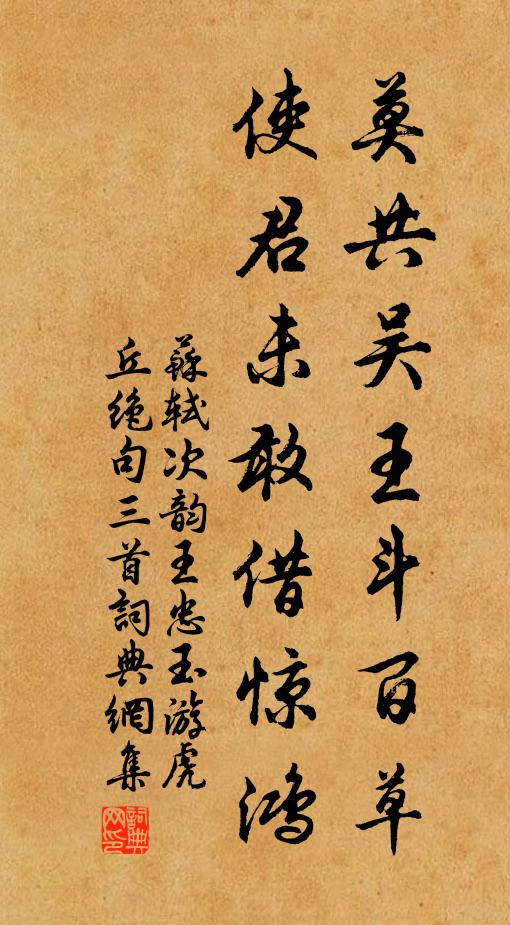 莫共吴王斗百草
使君未敢借惊鸿
蘇轼次韵王忠玉游虎
丘絶句三首詞典網集
詞典网印